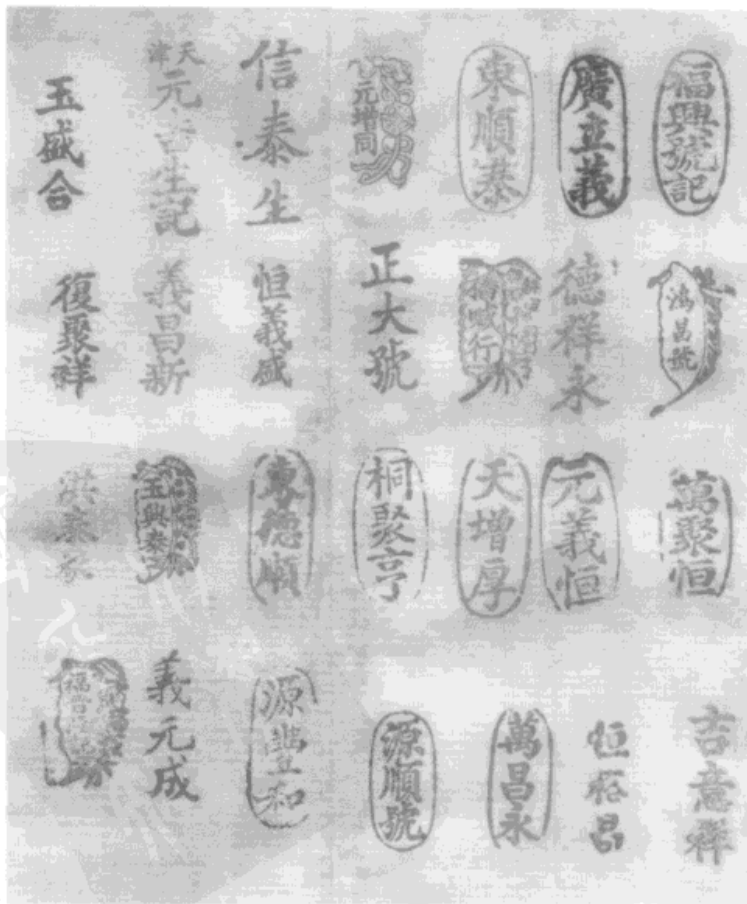 福興號記
廣立義
東順泰
元增同
信泰生
天津
元吉生記
玉盛合
鴻昌號
德祥永
正大號
恒義盛
義昌新
復聚祥
萬聚恒
元義恒
天增厚
桐聚亨
專德順
玉興泰
吉意祥
恒裕昌
萬昌永
源順號
源豐和
義元成